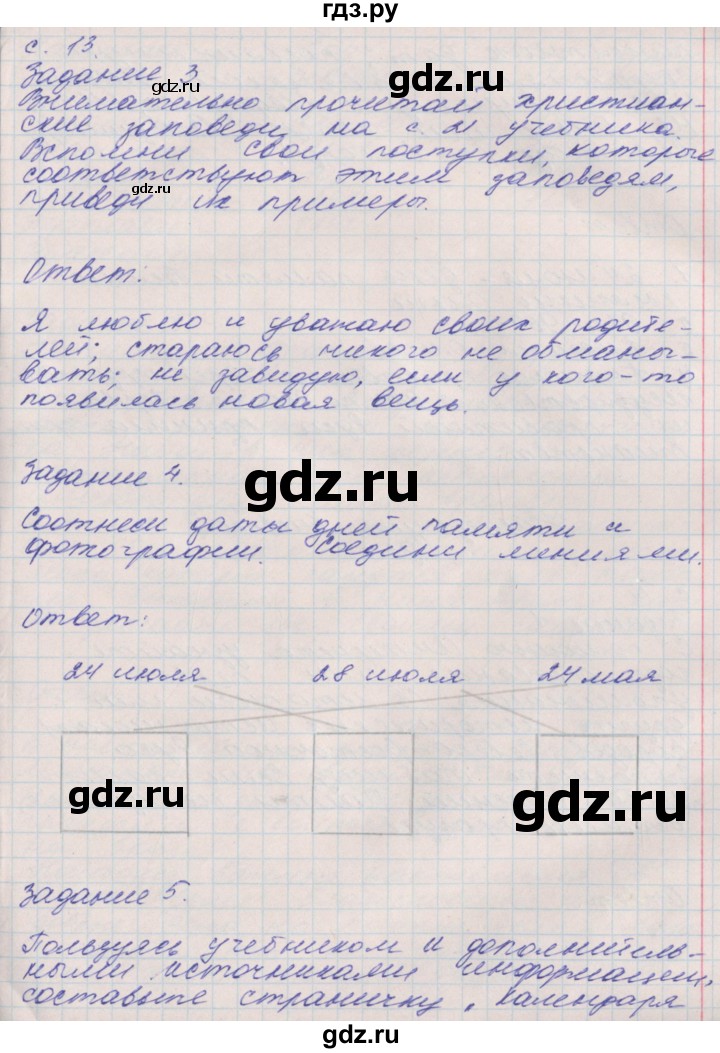 гдз.ру
с. 13.
Задание 3
Внимательно прочитай христиан-
ские заповеди на с. 21 учебника.
Вспомни свои поступки, которые
соответствуют этим заповедям,
приведи их примеры.
gdz.ru
Ответ:
Я люблю и уважаю своих родите-
лей; стараюсь никого не обманы-
вать; не завидую, если у кого-то
появилась новая вещь.
Задание 4.
gdz.ru
Соотнеси даты дней памяти и
фотографии. Соедини линиями.
Ответ:
24 июля 28 июля 24 мая
gdz.ru
gdz.ru
Задание 5.
gdz.ru
Пользуясь учебником и дополнитель-
ными источниками информации,
составьте страничку „календаря
gdz.ru